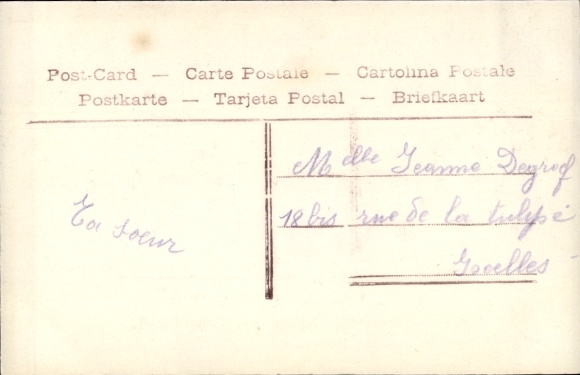 Post-Card — Carte Postale — Cartolina Postale
Postkarte — Tarjeta Postal — Briefkaart
Ta soeur
Melle Jeanne Degrof
18 bis rue de la tulipe
Ixelles